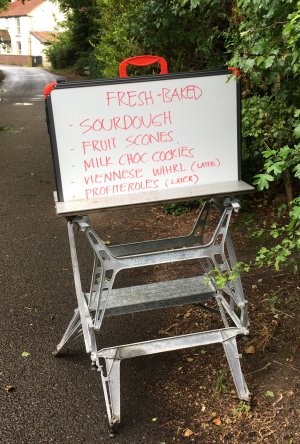 FRESH-BAKED
- SOURDOUGH
- FRUIT SCONES.
- MILK CHOC. COOKIES
- VIENNESE WHIRL (LATER)
- PROFITEROLES (LATER)